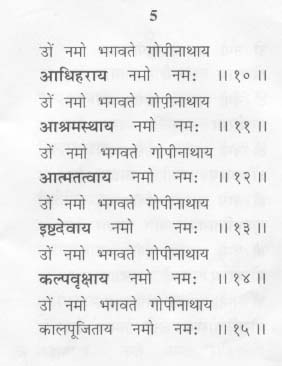 5
उों नमो भगवते गोपीनाथाय
आधिहराय नमो नमः ॥ १० ॥
उों नमो भगवते गोपीनाथाय
आश्रमस्थाय नमो नमः ॥ ११ ॥
उों नमो भगवते गोपीनाथाय
आत्मतत्वाय नमो नमः ॥ १२ ॥
उों नमो भगवते गोपीनाथाय
इष्टदेवाय नमो नमः ॥ १३ ॥
उों नमो भगवते गोपीनाथाय
कल्पवृक्षाय नमो नमः ॥ १४ ॥
उों नमो भगवते गोपीनाथाय
कालपूजिताय नमो नमः ॥ १५ ॥